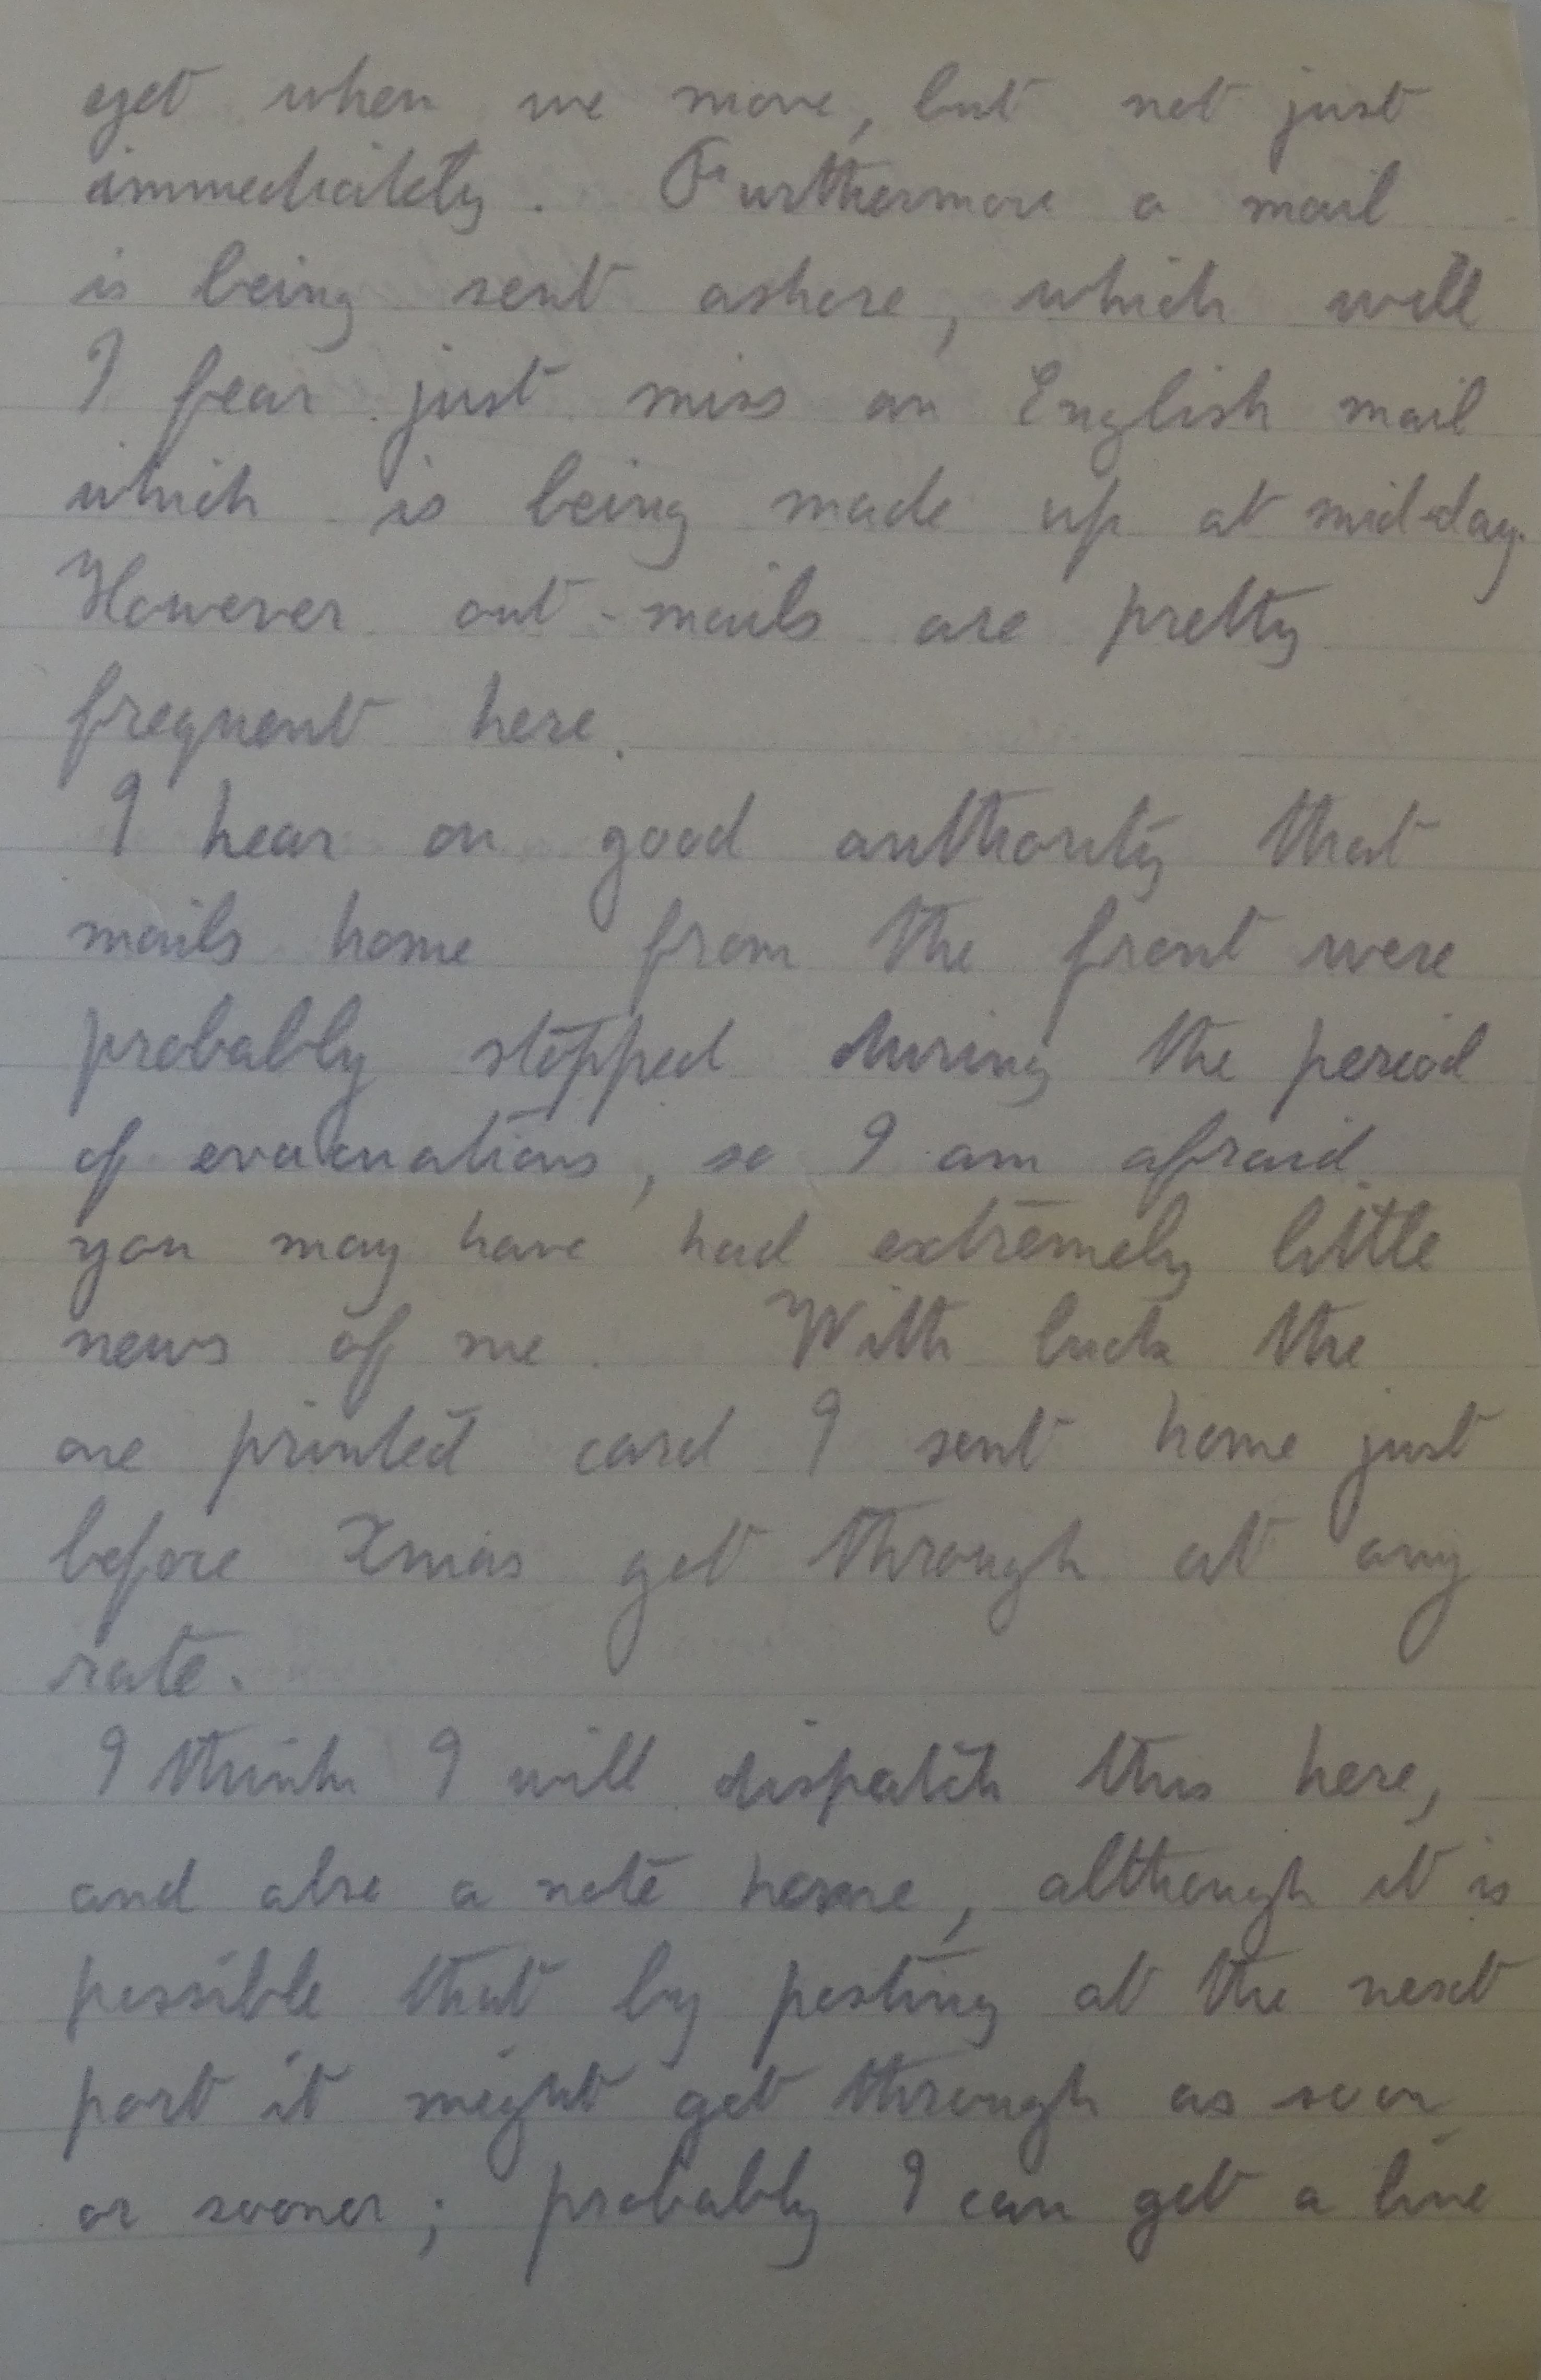 yet when we move, but not just
immediately. Furthermore a mail
is being sent ashore, which will
I fear just miss an English mail
which is being made up at mid-day.
However out-mails are pretty
frequent here.
I hear on good authority that
mails home from the front were
probably stopped during the period
of evacuations, so I am afraid
you may have had extremely little
news of me. With luck the
one printed card I sent home just
before Xmas got through at any
rate.
I think I will dispatch this here,
and also a note home, although it is
possible that by posting at the next
port it might get through as soon
or sooner; probably I can get a line